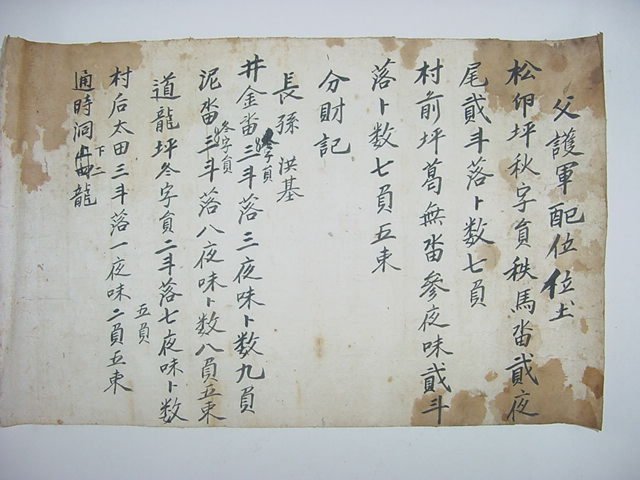 父護軍配位位土
松仰坪秋字負秩馬畓貳夜
尾貳斗落卜数七負
村前坪葛無畓參夜味貳斗
落卜数七負五束
分財記
長孫 洪基
井金畓冬字負三斗落三夜味卜数九負
泥畓冬字負三斗落八夜味卜数八負五束
道龍坪冬字負二斗落七夜味卜数
五負
村后太田三斗落一夜味二負五束
通時洞下二龍